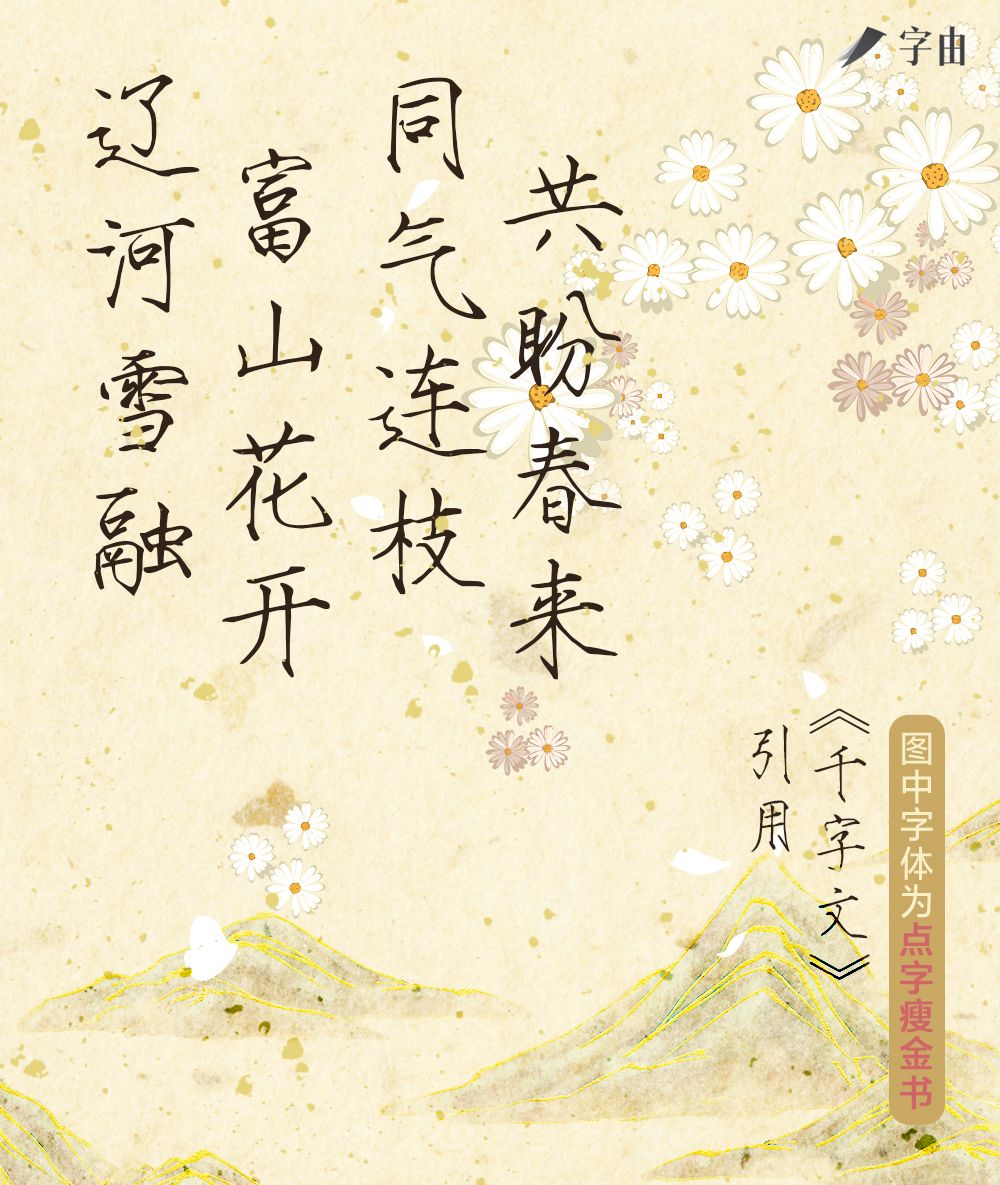 字由
辽河雪融
富山花开
同气连枝
共盼春来
引用
《千字文》
图中字体为点字瘦金书